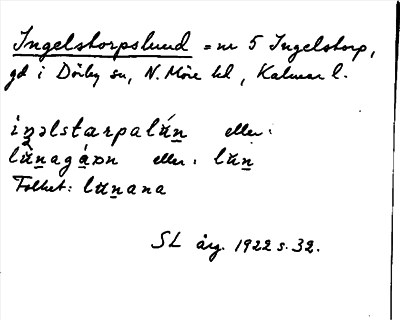 Ingelstorpslund = nr 5 Ingelstorp,
gd i Dörby sn, N. Möre hd, Kalmar l.
iŋəlstarpalún̠ eller:
lŭn̠agá̠ɔn eller: lŭn̠
Folket: lŭn̠ana
SL årg. 1922 s. 32.